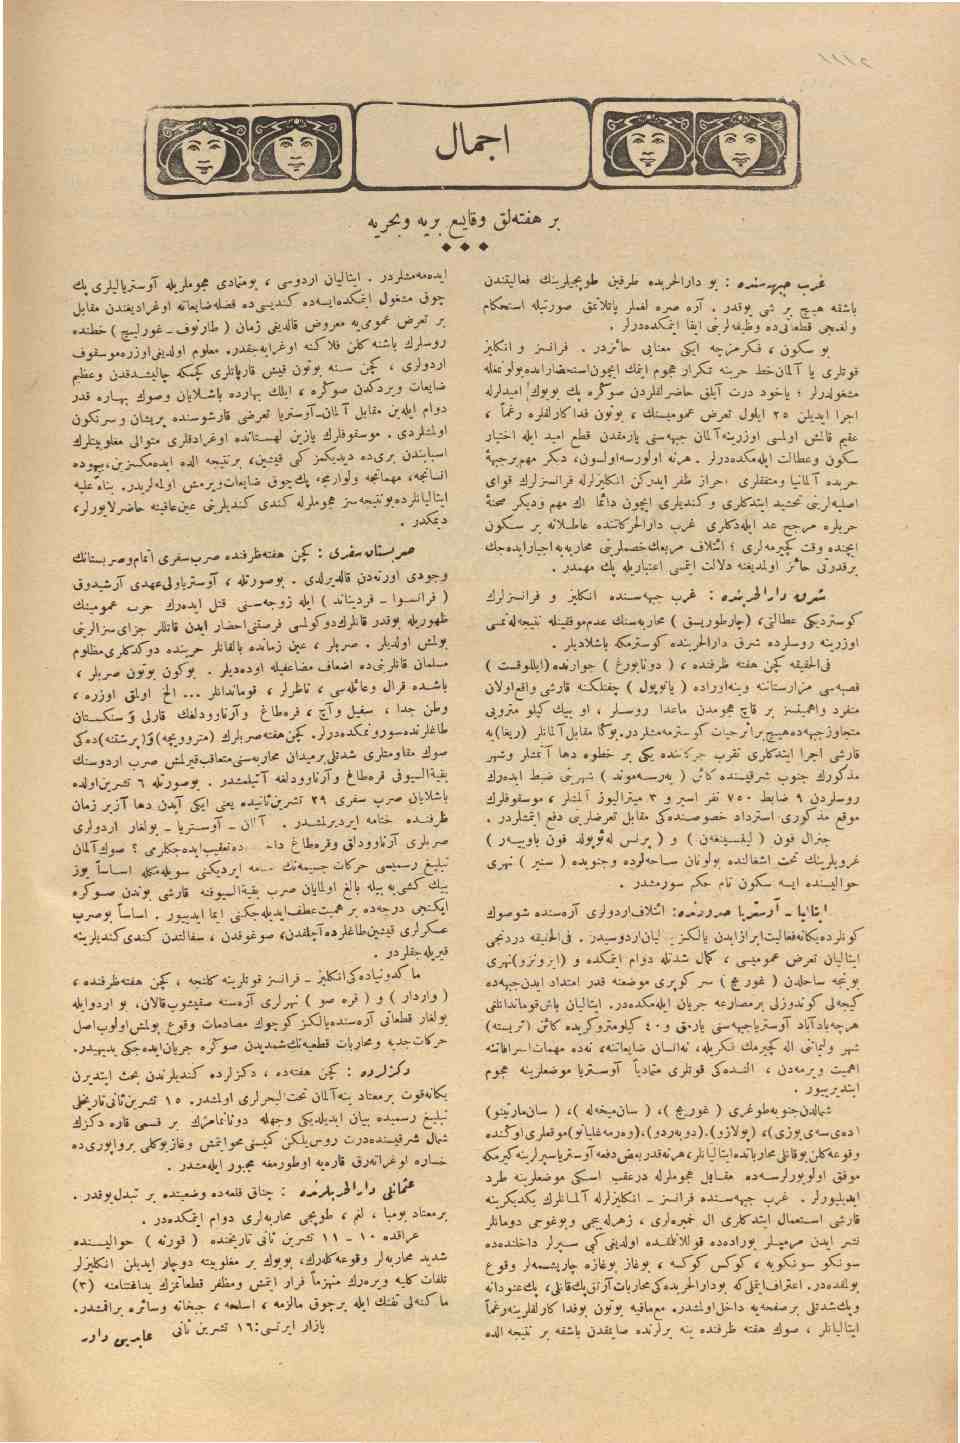 اجمال
بر هفته‌لق وقایع بریه وبحریه
غرب جبهه‌سنده : بو دارالحربده طرفین طوپجیلرینك فعالیتندن
باشقه هیچ بر شی یوقدر . آره صره لغملر پاتلاتمق صورتیله استحكام
ولغمجی قطعاتی‌ده وظیفه‌لرینی ایفا ایتمكده‌درلر .
بو سكون ، فكرمزجه ایكی معنایی حائزدر . فرانسز و انكلیز
قوتلری یا آلمان خط حربنه تكرار هجوم ایتمك ایچون استحضارانده بولونمغله
مشغولدرلر ؛ یاخود درت آیلق حاضرلقلردن صوكره پك بویوك امیدلرله
اجرا ایدیلن ٢٥ ایلول تعرض عمومیسنك ، بوتون فداكارلقلره رغماً ،
عقیم قالمش اولمسی اوزرینه آلمان جبهه‌سنی یارمقدن قطع امید ایله اختیار
سكون وعطالت ایله‌مكده‌درلر . هرنه اولورسه اولسون ، دیكر مهم برجبهۀ
حربده آلمانیا ومتفقلری احراز ظفر ایدركن انكلیزلرله فرانسزلرك قوای
اصلیه‌لرینی تحشید ایتدكلری و كندیلری ایچون دائما اك مهم ودیكر صحنۀ
حربلره مرجح عد ایله‌دكلری غرب دارالحركاتنده عاطلانه بر سكون
ایچنده وقت كچیرمه‌لری ؛ ائتلاف مربعك خصملرینی محاربه‌یه اجبار ایده‌جك
برقدرتی حائز اولمدیغنه دلالت ایتمسی اعتباریله پك مهمدر .
شرق دارالحربنده : غرب جبهه‌سنده انكلیز و فرانسزلرك
كوستردیكی عطالتی، (چارطوریسق ) محاربه‌سنك عدم موفقیتله نتیجه‌له‌نمسی
اوزرینه روسلرده شرق دارالحربنده كوسترمكه باشلادیلر .
فی‌الحقیقه كچن هفته ظرفنده ، ( دوناپورغ ) جوارنده (ایللوقست )
قصبه‌سی مزارستاننه وینه اوراده ( یانوپول ) چفتلكنه قارشی واقع اولان
منفرد واهمیتسز بر قاچ هجومدن ماعدا روسلر ، او بیك كیلو مترویی
متجاوز جبهه‌ده هیچ براثر حیات كوسترمه‌مشلردر. بوكا مقابل آلمانلر (ریغا)یه
قارشی اجرا ایتدكلری تقرب حركاتنده یكی بر خطوه دها آتمشلر وشهر
مذكورك جنوب شرقیسنده كائن ( به‌رسه‌موند ) شهرینی ضبط ایده‌رك
روسلردن ٩ ضابط ٧٥٠ نفر اسیر و ٣ میترالیوز آلمشلر ، موسقوفلرك
موقع مذكوری استرداد خصوصنده‌كی مقابل تعرضلرینی دفع ایتمشلردر .
جنرال فون ( لیقسینغه‌ن ) و ( پرنس له‌ئوپولد فون باویه‌ر )
غروپلرینك تحت اشغالنده بولونان ساحه‌لرده وجنوبده ( ستیر ) نهری
حوالیسنده ایسه سكون تام حكم سورمشدر .
ایتالیا ـ آوستریا حدودنده: ائتلاف اردولری آره‌سنده شو صوك
كونلرده یكانه فعالیت ابراز ایدن یالكز لیان اردوسیدر . فی‌الحقیقه دردنجی
ایتالیان تعرض عمومیسی ، كمال شدتله دوام ایتمكده و (ایزونزو)نهری
بونجه ساحلدن ( غوریچ ) سر كوپری موضعنه قدر امتداد ایدن جبهه‌ده
كیجه‌لی كوندوزلی برمصارعه جریان ایله‌مكده‌در. ایتالیان باش قومانداننلغی
هرچه بادآباد آوستریا جبهه‌سنی یارمق و ٤٠ كیلومتره‌وكریده كائن (تریسته)
شهر ولیماننی اله كچیرمك فكریله، نه‌انسان ضایعاتنه، نه‌ده مهمات اسرافاتنه
اهمیت ویرمه‌دن ، النده‌كی قوتلری متمادیاً آوستریا موضعلرینه هجوم
ایتدیریپور .
شمالدن جنوبه طوغری ( غوریچ )، ( سان میخه‌له )، ( سان مارتینو)
(ده‌ی سه‌ی بوزی)، (پولازو)، (دوبه‌ردو)، (وه‌رمه‌غلیانو)موقعلری اوكنده
وقوعه كلن بوقانلی محارباتده ایتالیانلر، هرنه‌قدر بعض دفعه آوستریا سپرلرینه كیرمكه
موفق اولویورلرسه‌ده مقابل هجوملرله درعقب اسكی موضعلرینه طرد
ایدیلیورلر . غرب جبهه‌سنده فرانسز ـ انكلیزلرله آلمانلرك یكدیكرینه
قارشی استعمال ایتدكلری ال خمپره‌لری ، زهرله‌ییجی وبوغوجی دومانلر
نشر ایدن مرمیلر بوراده‌ده قوللانلمقده اولدیغی كبی سپرلر داخلنده‌ده
سونكو سونكویه ، كوكس كوكسه ، بوغاز بوغازه چارپیشمه‌لر وقوع
بولمقده‌در. اعتراف ایتملی‌كه بودارالحربده‌كی محاربات آرتق پك قانلی، پك عنودانه
وپك شدتلی برصفحه‌یه داخل اولمشدر. مع‌مافیه بوتون بوفداكارلقلرینه رغماً
ایتالیانلر ، صوك هفته ظرفنده ینه برلرنده صایمقدن باشقه بر نتیجه الده
ایده‌مه‌مشلردر . ایتالیان اردوسی ، بومتمادی هجوملریله آوستریالیلری پك
چوق مشغول ایتمكده‌ایسه‌ده كندیسی‌ده فضله ضایعاته اوغرادیغندن مقابل
بر تعرض عمومی‌یه معروض قالدیغی زمان ( طارنوف ـ غورلیچ ) خطنده
روسلرك باشنه كلن فلاكته اوغرایه‌جقدر. معلوم اولدیغی اوزره موسقوف
اردولری ، كچن سنه بوتون قیش قارپاتلری كچمكه چالیشدقدن وعظیم
ضایعات ویردكدن صوكره ، ایلك بهارده باشلایان وصوك بهاره قدر
دوام ایله‌ین مقابل آلمان ـ آوستریا تعرضی قارشوسنده پریشان وسرنكون
اولمشلردی . موسقوفلرك یازین لهستانده اوغرادقلری متوالی مغلوبیتلرك
اسبابندن بری‌ده دیدیكمز كبی قیشین، برنتیجه الده ایده‌مكسزین، بیهوده
انسانجه، مهماتجه ولوازمجه پك چوق ضایعات ویرمش اولمه‌لریدر. بناءً علیه
ایتالیانلرده بو نتیجه‌سز هجوملرله كندی كندیلرینی عین عاقبته حاضرلایورلر،
دیمكدر .
صربستان سفری : كچن هفته ظرفنده صرب سفری اتمام وصربستانك
وجودی اورته‌دن قالدیرلدی . بوصورتله ، آوستریا ولی‌عهدی آرشیدوق
( فرانسوا ـ فردیناند ) ایله زوجه‌سنی قتل ایده‌رك حرب عمومینك
ظهوریله بوقدر قانلرك دوكولمسی فرصتنی احضار ایدن قاتللر جزای سزالرینی
بولمش اولدیلر . صربلر ، عین زمانده بالقانلر حربنده دوكدكلری مظلوم
مسلمان قانلرینی‌ده اضعاف مضاعفیله اوده‌دیلر . بوكون بوتون صربلر ،
باشده قرال وعائله‌سی ، ناظرلر ، قوماندانلر ... الخ اولمق اوزره ،
وطن جدا ، سفیل وآچ ، قره‌طاغ وآرناودلغك قارلی و سنكستان
طاغلرنده سورونمكده‌درلر. كچن هفته صربلرك (متروویچه) و(پرشتنه)ده‌كی
صوك مقاومتلری شدتلی برمیدان محاربه‌سنی متعاقب قیرلمش صرب اردوسنك
بقیةالسیوفی قره‌طاغ وآرناودلغه آتیلمشدر . بوصورتله ٦ تشرین اولده
باشلایان صرب سفری ٢٩ تشرین ثانیده یعنی ایكی آیدن دها آز بر زمان
ظرفنده ختامه ایردیرلمشدر . آلمان ـ آوستریا ـ بولغار اردولری
صربلری آرناودلق وقره‌طاغ داخلنده تعقیب ایده‌جكلرمی ؟ صوك آلمان
تبلیغ رسمیسی حركات جسیمه‌نك ختامه ایردیكنی سویله‌مكله اساساً یوز
بیك كشی‌یه بیله بالغ اولمایان صرب بقیةالسیوفنه قارشی بوندن صوكره
ایكنجی درجه‌ده بر اهمیت عطف ایدیله‌جكنی ایما ایدییور . اساساً بوصرب
عسكرلری قیشین طاغلرده آچلقدن، صوغوقدن ، سفالتدن كندی كندیلرینه
قیریله‌جقلردر .
ماكدونیاده‌كی انكلیز ـ فرانسز قوتلرینه كلنجه ، كچن هفته ظرفنده ،
( واردار ) و ( قره صو ) نهرلری آره‌سنه صیقیشوب قالان، بو اردوایله
بولغار قطعاتی آره‌سنده یالكز كوچوك مصادمات وقوع بولمش اولوب اصل
حركات جدیه ومحاربات قطعیه‌نك شمدیدن صوكره جریان ایده‌جكی بدیهیدر.
دكزلرده : كچن هفته‌ده ، دكزلرده كندیلرندن بحث ایتدیرن
یكانه قوت برمعتاد ینه آلمان تحت‌البحرلری اولمشدر. ١٥ تشرین ثانی تاریخلی
تبلیغ رسمیده بیان ایدیلدیكی وجهله دونانمامزك بر قسمی قاره دكزك
شمال شرقیسنده درت روس یلكن كمیسنی محو ایتمش وغاز یوكلی بر واپوری‌ده
خساره اوغراته‌رق قاره‌یه اوطورمغه مجبور ایله‌مشدر .
عثمانلی دارالحربلرنده : چناق قلعه‌ده وضعیتده بر تبدل یوقدر .
برمعتاد بومبا ، لغم ، طوپجی محاربه‌لری دوام ایتمكده‌در .
عراقده ١٠ ـ ١١ تشرین ثانی تاریخنده ( قورنه ) حوالیسنده
شدید محاربه‌لر وقوعه كلدرك، بویوك بر مغلوبیته دوچار ایدیلن انكلیزلر
تلفات كلیه ویره‌رك منهزماً فرار ایتمش ومظفر قطعاتمزك یداغتنامنه (٣)
ماكنه‌لی تفنك ایله برچوق مالزمه ، اسلحه ، جبخانه وسائره براقمشدر.
بازار ایرتسی: ١٦ تشرین ثانی
عابدین داور